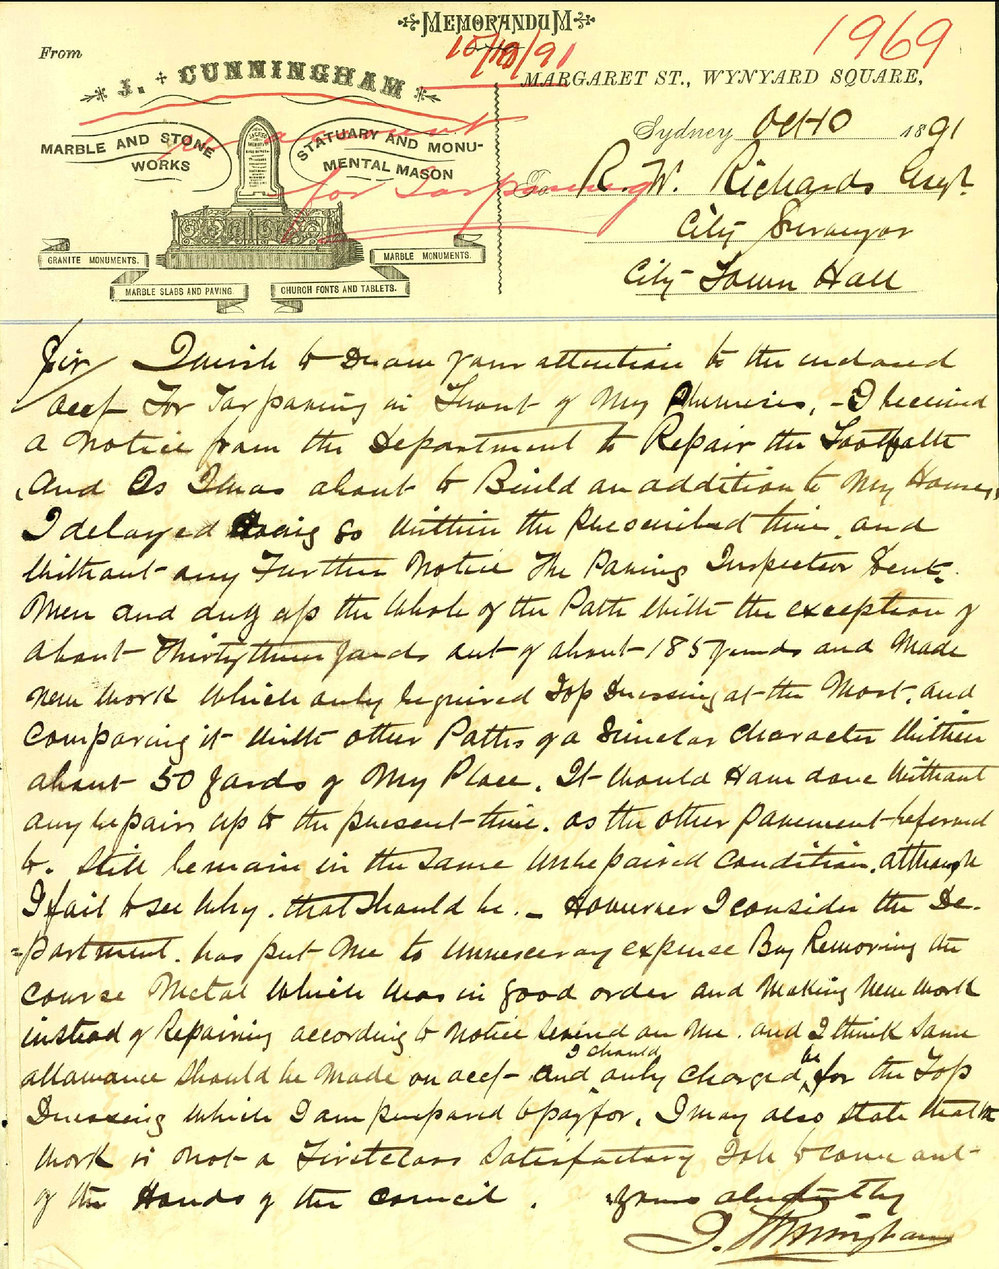 MEMORANDUM
1969
From
15/10/91
MARGARET ST., WYNYARD SQUARE,
J. CUNNINGHAM
Sydney Oct 10 1891
MARBLE AND STONE
WORKS
STATUARY AND MONU-
MENTAL MASON
re account
for Tarpaving
To R. W. Richards Esqr.
City Surveyor
City Town Hall
GRANITE MONUMENTS.
MARBLE MONUMENTS.
MARBLE SLABS AND PAVING.
CHURCH FONTS AND TABLETS.
Sir I wish to Draw your attention to the enclosed
acct For Tarpaving in Front of My Premises, - I received
a Notice from the Department to Repair the Footpath
And As I was about to Build an addition to My House,
I delayed Doing So Within the prescribed time and
Without any Further Notice The Paving Inspector Sent
Men and dug up the Whole of the Path With the exception of
about Thirty three yards out of about 185 yards and Made
New Work Which only required Top Dressing at the Most, and
Comparing it With other Paths of a Similar Character Within
about 50 yards of My Place, It Would Have done Without
any repairs up to the present time. as the other Pavement referred
to. Still remain in the Same Unrepaired Condition, although
I fail to see Why. that Should be. - However I consider the De-
=partment. has put Me to Unnecessary expense By Removing the
course Metal Which Was in good order and Making New Work
instead of Repairing according to Notice Served on Me. and I think Some
allowance Should be Made on acct - and I should only be Charged for the Top
Dressing Which I am prepared to pay for, I may also State that the
Work is Not a First class Satisfactory Job to come out
of the Hands of the Council.
Yours obediently
J. Cunningham